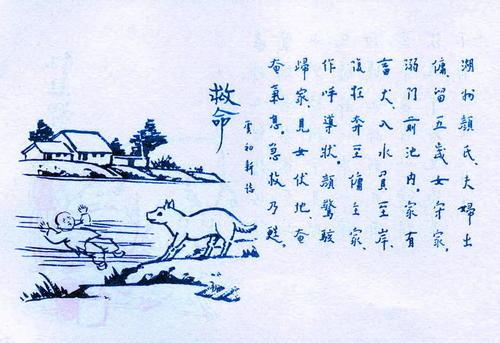 湖州顏氏、夫婦出
傭、留五歲女守家、
溺門前池內、家有
畜犬、入水負至岸、
復狂奔至傭主家、
作呼導狀、顏驚駭
歸家、見女伏地、奄
奄氣息、急救乃甦。
救命
虞初新誌